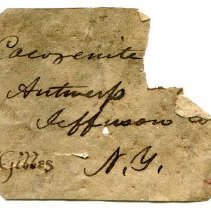 Cacoxenite
Antwerp
Jefferson co
Gibbes N.Y.